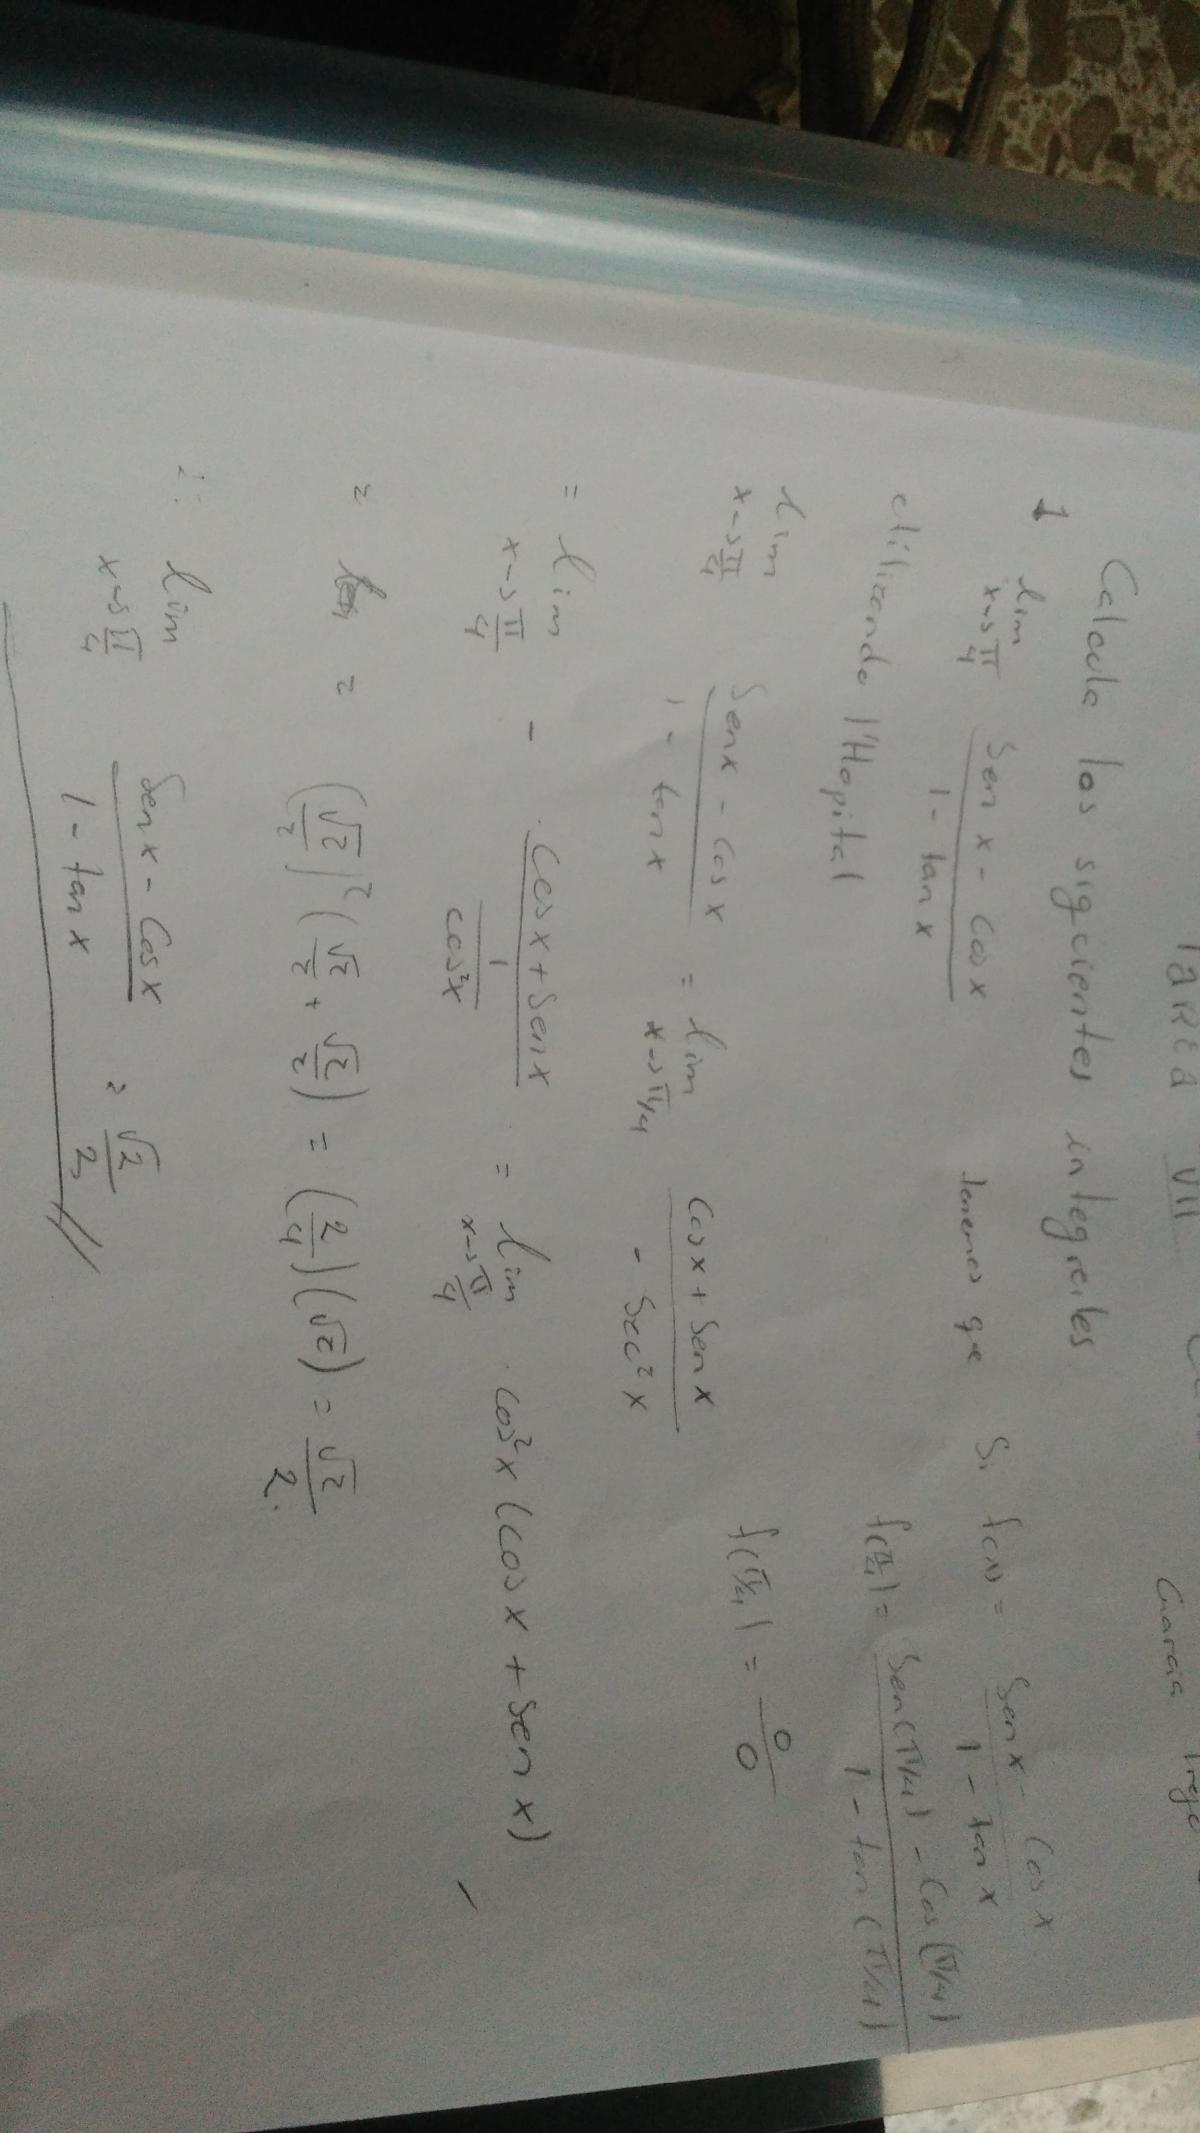 TAREA VII
Garcia Trejo
Calcule los siguientes integrales
1 lim x→π/4 (Sen x - Cos x)/(1 - tan x) tenemos que Si f(x) = (Sen x - Cos x)/(1 - tan x)
Utilizando l'Hopital f(π/4) = (Sen(π/4) - Cos(π/4))/(1 - tan(π/4))
lim x→π/4 (Sen x - Cos x)/(1 - tan x) = lim x→π/4 (Cos x + Sen x)/(- Sec²x) f(π/4) = 0/0
= lim x→π/4 - (Cos x + Sen x)/(1/cos²x) = lim x→π/4 . cos²x (cos x + Sen x)
= = (√2/2)² (√2/2 + √2/2) = (2/4)(√2) = √2/2.
∴ lim x→π/4 (Sen x - Cos x)/(1 - tan x) = √2/2 //